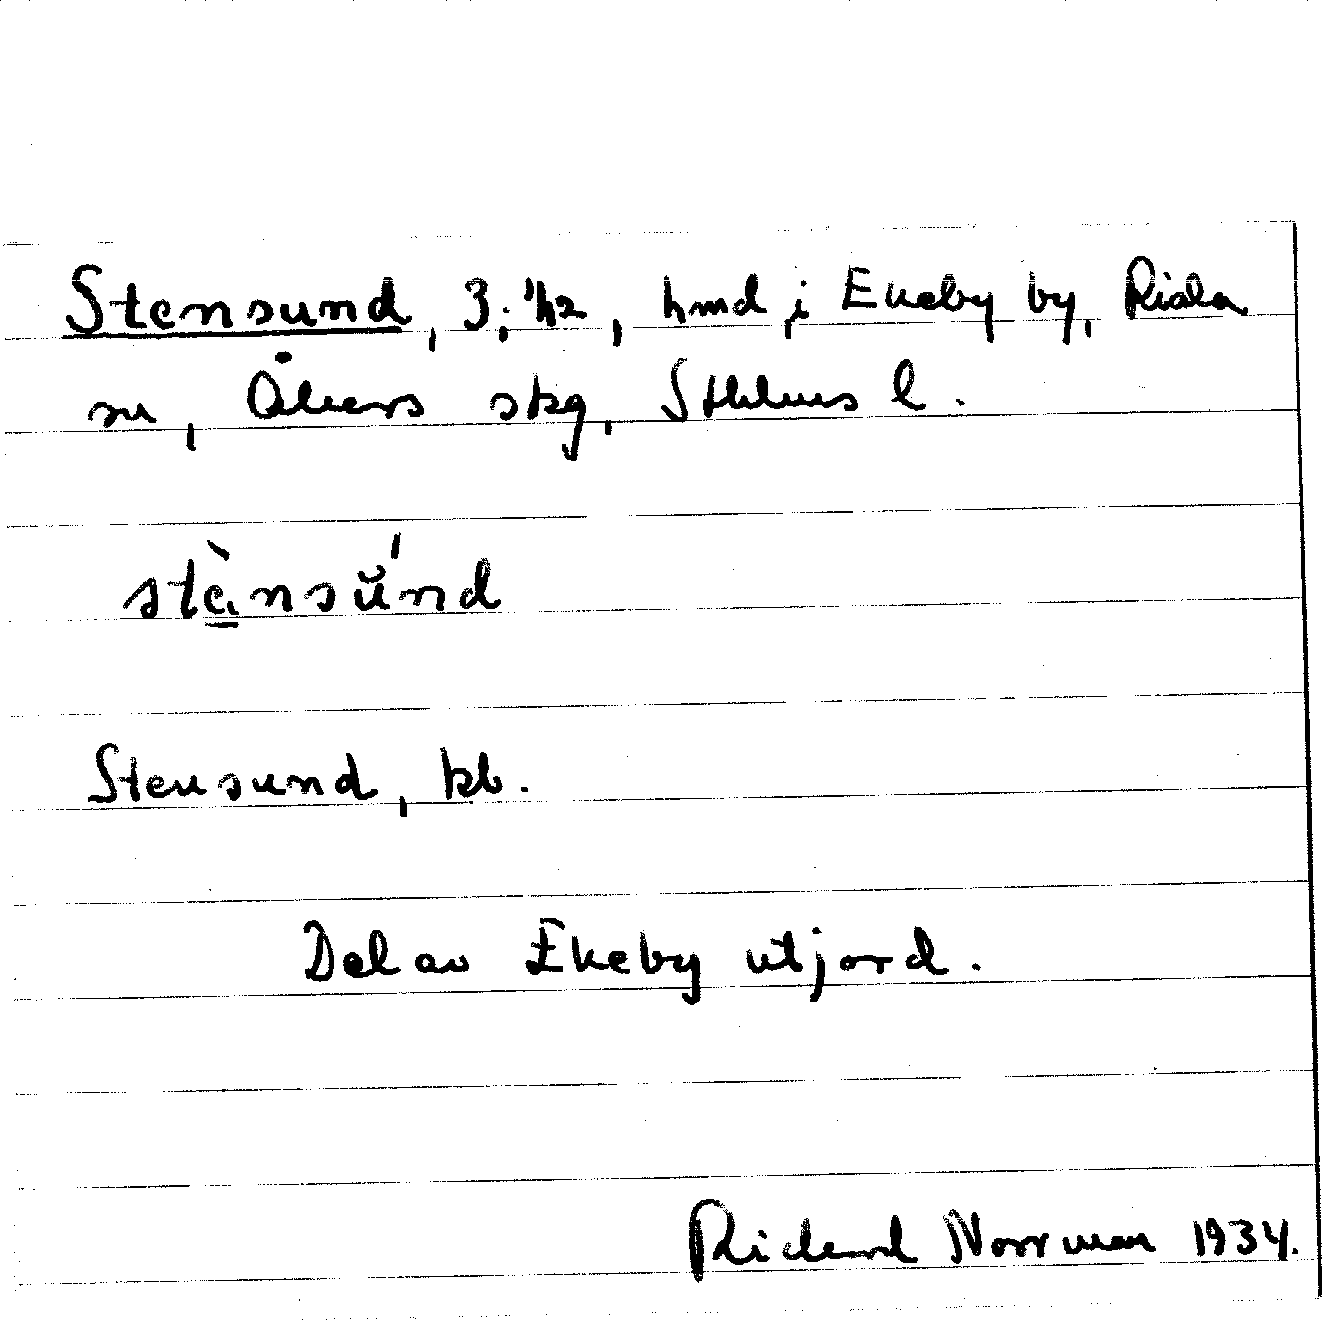 Stensund, 3; 1/12, hmd i Ekeby by, Riala
sn, Åkers skg, Sthlms l.
stènsŭ́nd
Stensund, kb.
Del av Ekeby utjord.
Rickard Norrman 1934.